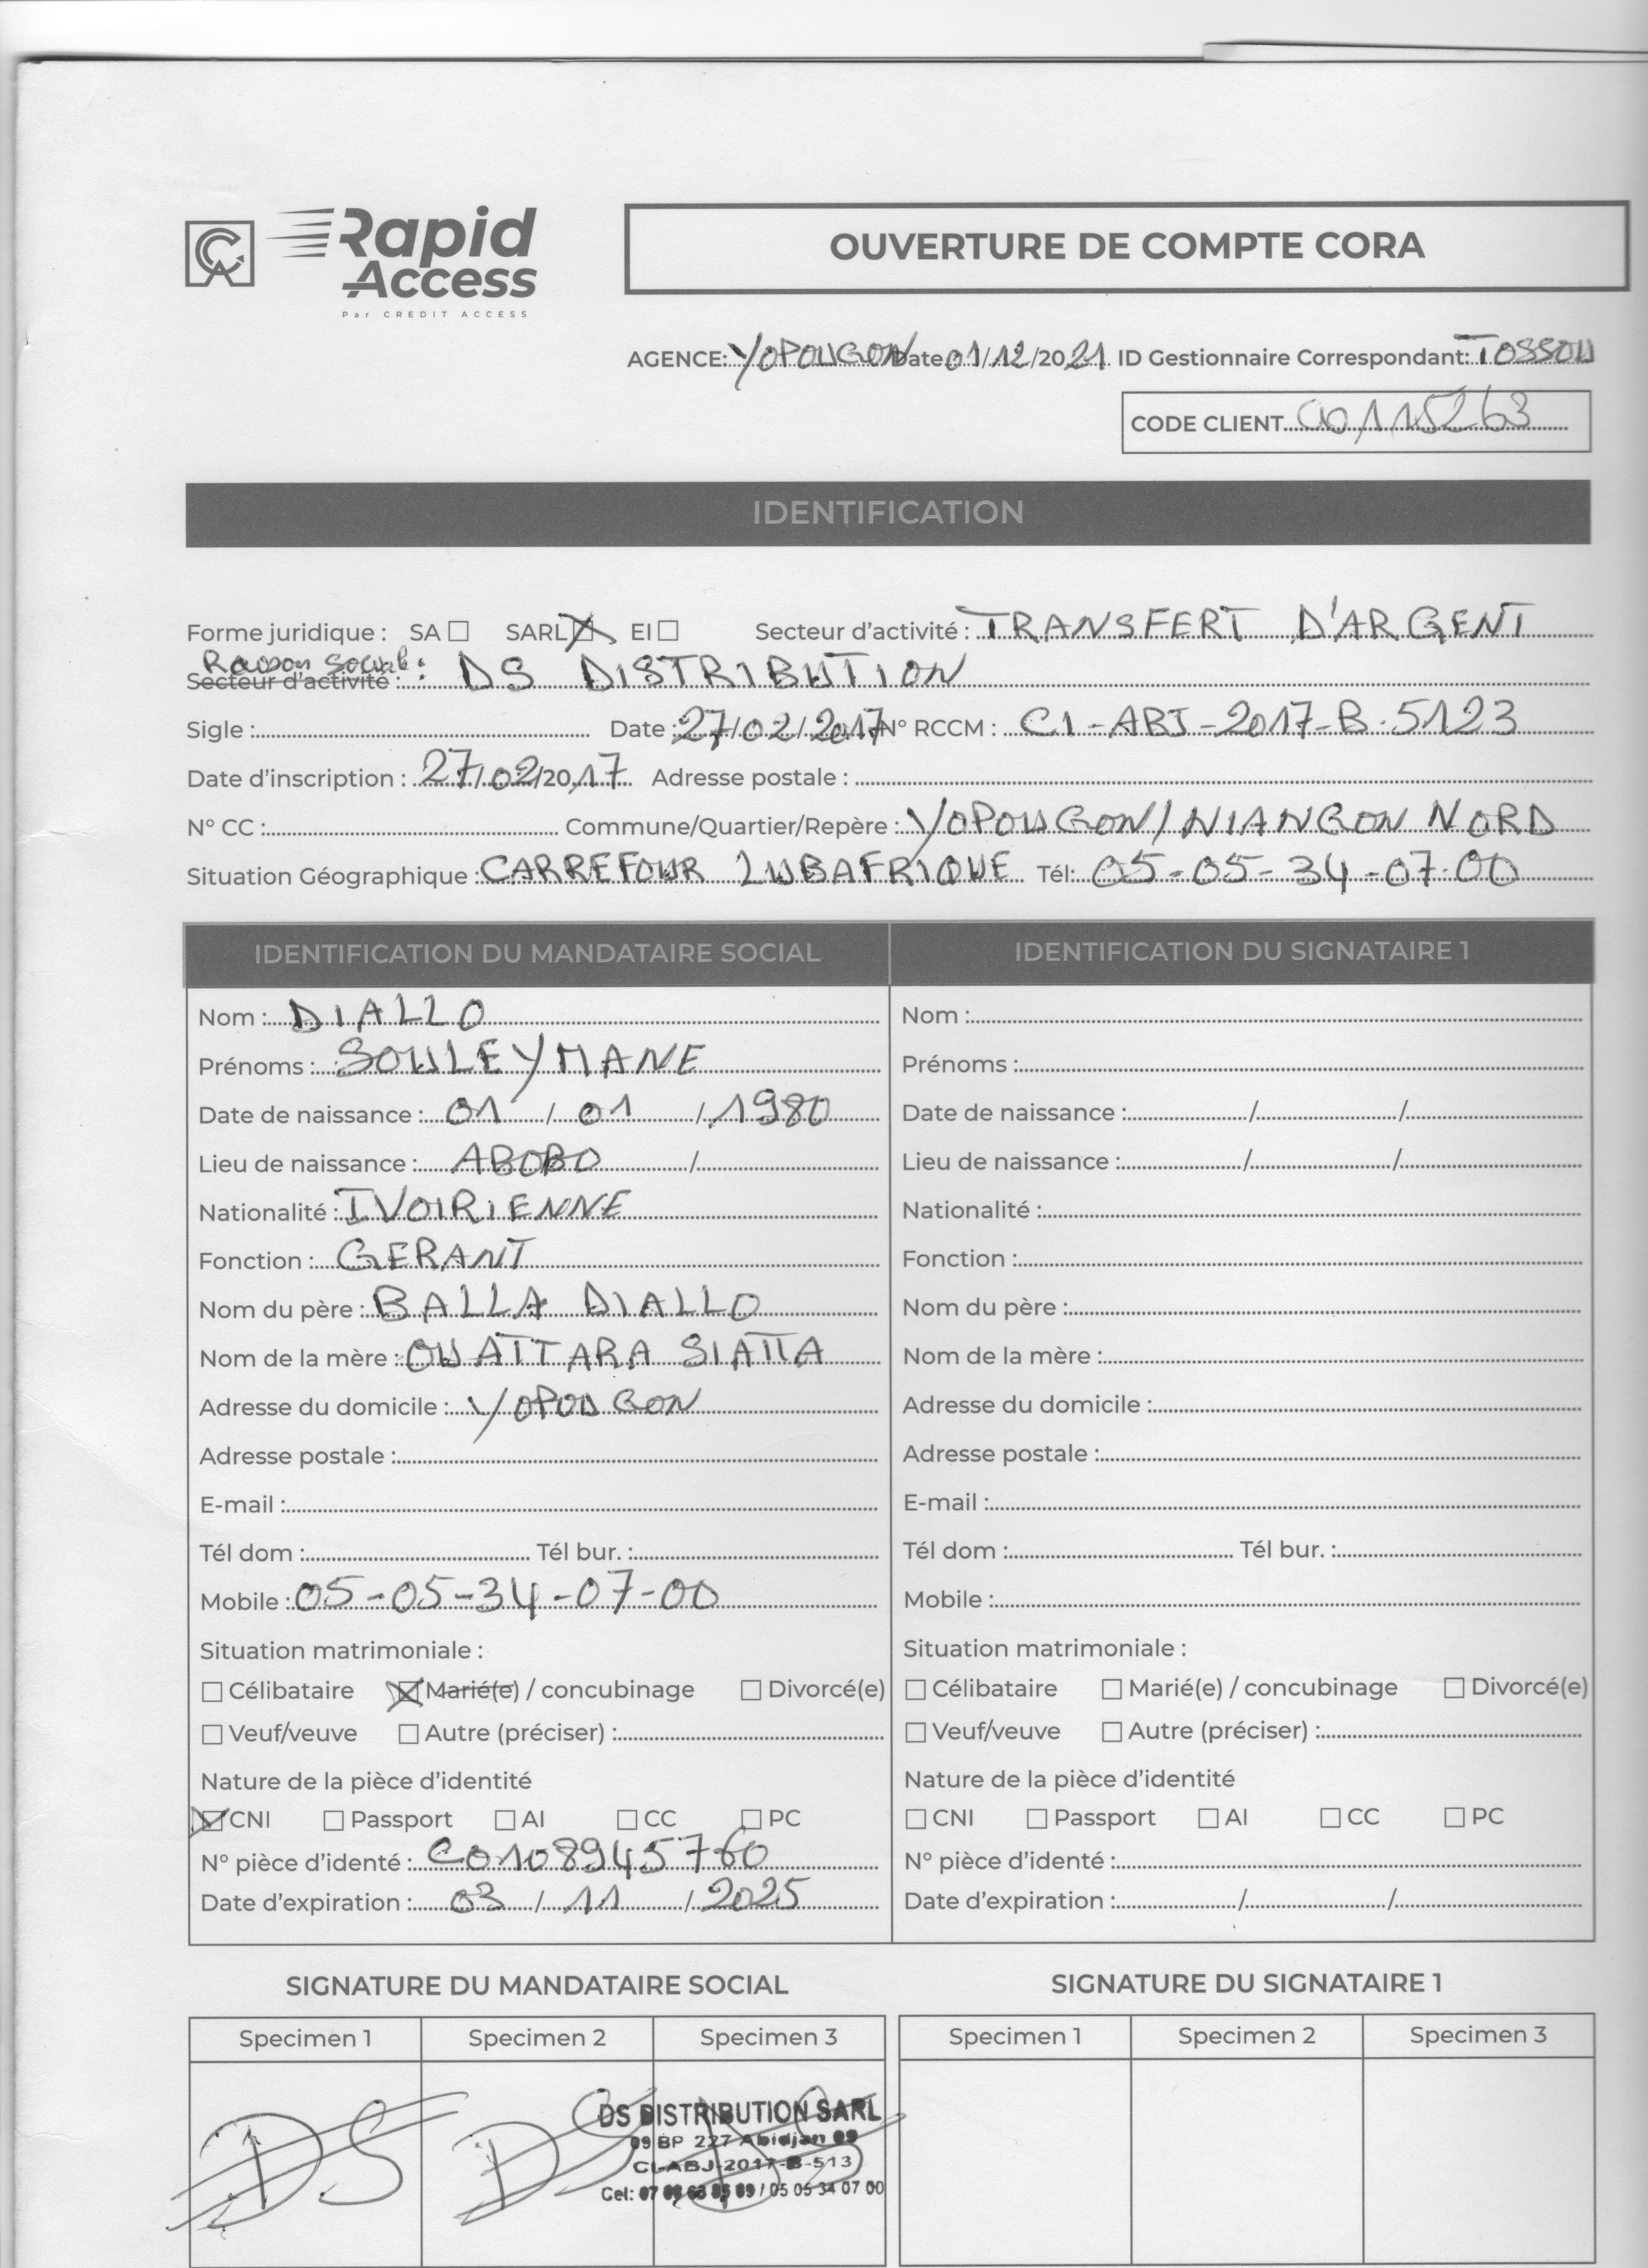 CA Rapid
Access
Par CREDIT ACCESS
OUVERTURE DE COMPTE CORA
AGENCE: YOPOUGON Date 01/12/2021 ID Gestionnaire Correspondant: TOSSOU
CODE CLIENT 00115263
IDENTIFICATION
Forme juridique : SA ☐ SARL ☒ EI ☐ Secteur d'activité : TRANSFERT D'ARGENT
Raison social :
Secteur d'activité : DS DISTRIBUTION
Sigle : Date : 27/02/2017 N° RCCM : CI-ABJ-2017-B-5123
Date d'inscription : 27/02/2017 Adresse postale :
N° CC : Commune/Quartier/Repère : YOPOUGON/NIANGON NORD
Situation Géographique : CARREFOUR LUBAFRIQUE Tél: 05-05-34-07-00
IDENTIFICATION DU MANDATAIRE SOCIAL IDENTIFICATION DU SIGNATAIRE 1
Nom : DIALLO Nom :
Prénoms : SOULEYMANE Prénoms :
Date de naissance : 01 / 01 / 1980 Date de naissance : / /
Lieu de naissance : ABOBO / Lieu de naissance : / /
Nationalité : IVOIRIENNE Nationalité :
Fonction : GERANT Fonction :
Nom du père : BALLA DIALLO Nom du père :
Nom de la mère : OUATTARA SIATTA Nom de la mère :
Adresse du domicile : YOPOUGON Adresse du domicile :
Adresse postale : Adresse postale :
E-mail : E-mail :
Tél dom : Tél bur. : Tél dom : Tél bur. :
Mobile : 05-05-34-07-00 Mobile :
Situation matrimoniale : Situation matrimoniale :
☐ Célibataire ☒ Marié(e) / concubinage ☐ Divorcé(e) ☐ Célibataire ☐ Marié(e) / concubinage ☐ Divorcé(e)
☐ Veuf/veuve ☐ Autre (préciser) : ☐ Veuf/veuve ☐ Autre (préciser) :
Nature de la pièce d'identité Nature de la pièce d'identité
☒ CNI ☐ Passport ☐ AI ☐ CC ☐ PC ☐ CNI ☐ Passport ☐ AI ☐ CC ☐ PC
N° pièce d'identé : C0108945760 N° pièce d'identé :
Date d'expiration : 03 / 11 / 2025 Date d'expiration : / /
SIGNATURE DU MANDATAIRE SOCIAL SIGNATURE DU SIGNATAIRE 1
Specimen 1 Specimen 2 Specimen 3 Specimen 1 Specimen 2 Specimen 3
DS DS
DS DISTRIBUTION SARL
09 BP 227 Abidjan 09
CI-ABJ-2017-B-513
Cel: 07 09 / 05 05 34 07 00